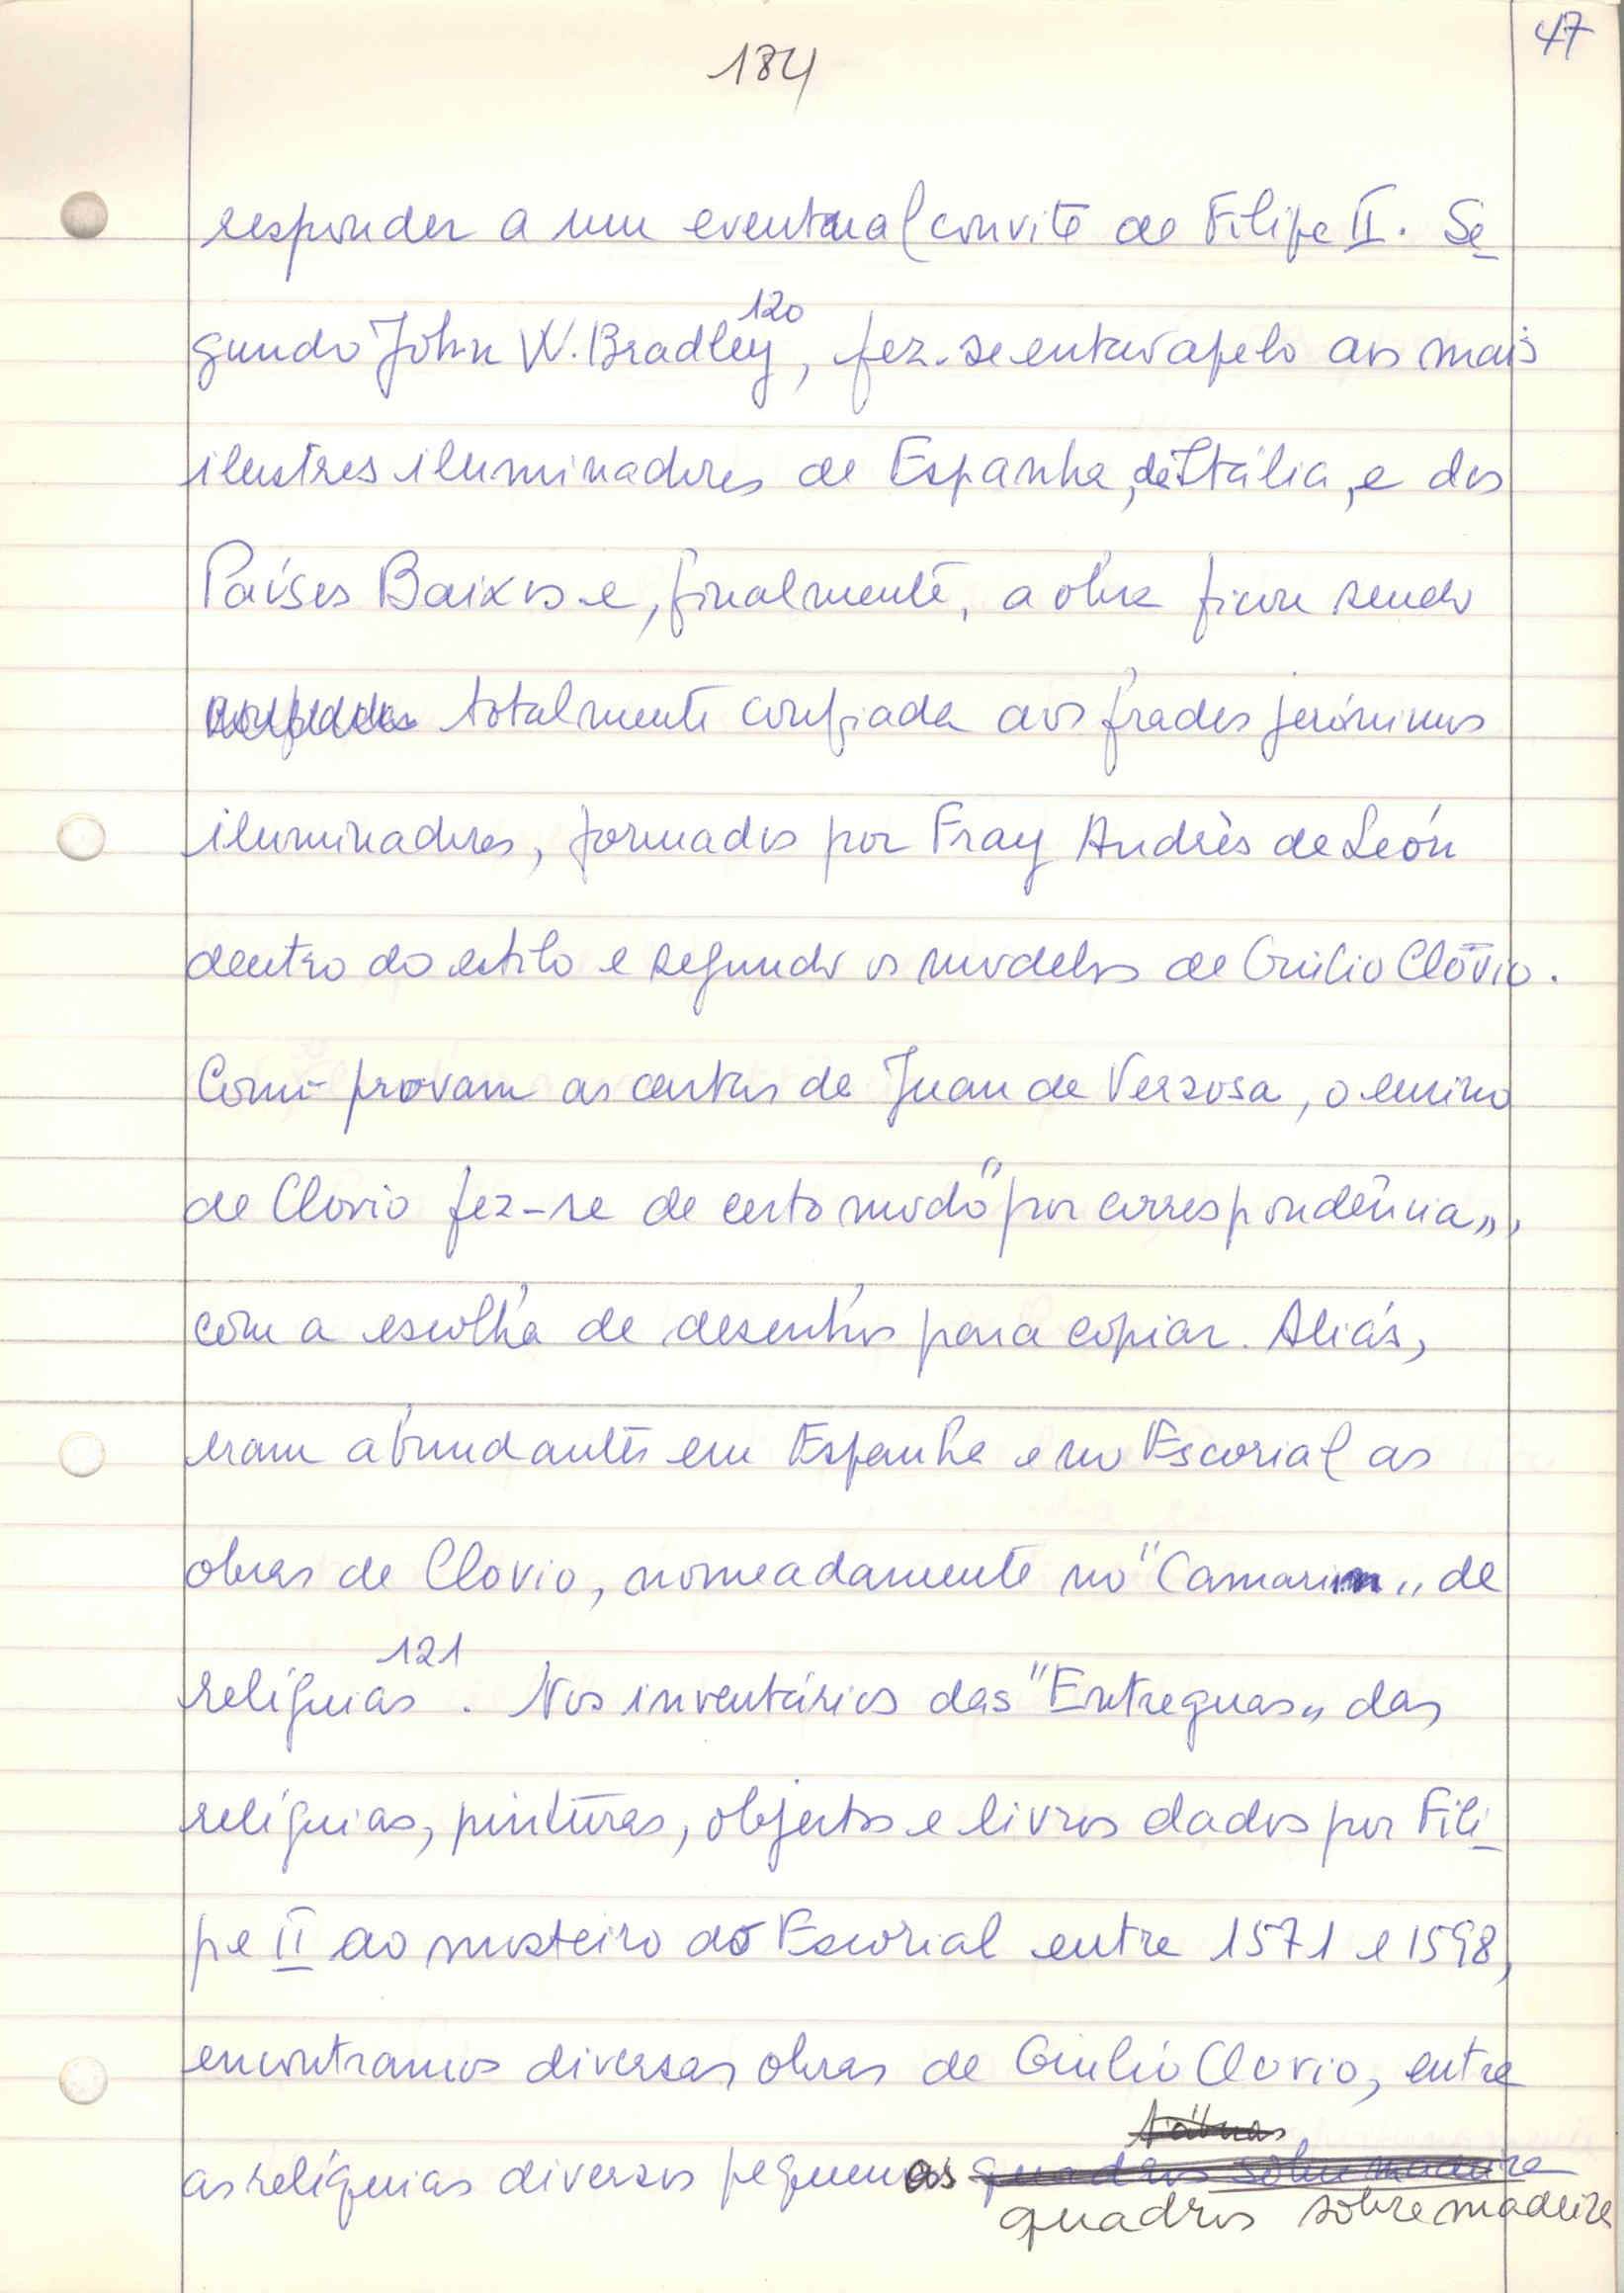 47
184
responder a um eventual convite de Filipe II. Se
120
gundo John W. Bradley, fez-se então apelo aos mais
ilustres iluminadores de Espanha, de Itália, e dos
Países Baixos e, finalmente, a obra ficou sendo
totalmente confiada aos frades jerónimos
iluminadores, formados por Fray Andrès de León
dentro do estilo e segundo os modelos de Giulio Clóvio.
Como provam as cartas de Juan de Verzosa, o ensino
de Clovio fez-se de certo modo "por correspondência",
com a escolha de desenhos para copiar. Aliás,
eram abundantes em Espanha e no Escorial as
obras de Clovio, nomeadamente no "Camarin" de
121
relíquias. Nos inventários das "Entreguas" das
relíquias, pinturas, objectos e livros dados por Fili
pe II ao mosteiro do Escorial entre 1571 e 1598,
encontramos diversas obras de Giulio Clovio, entre
tábuas
as relíquias diversos pequenos quadros sobre madeira
quadros sobre madeira